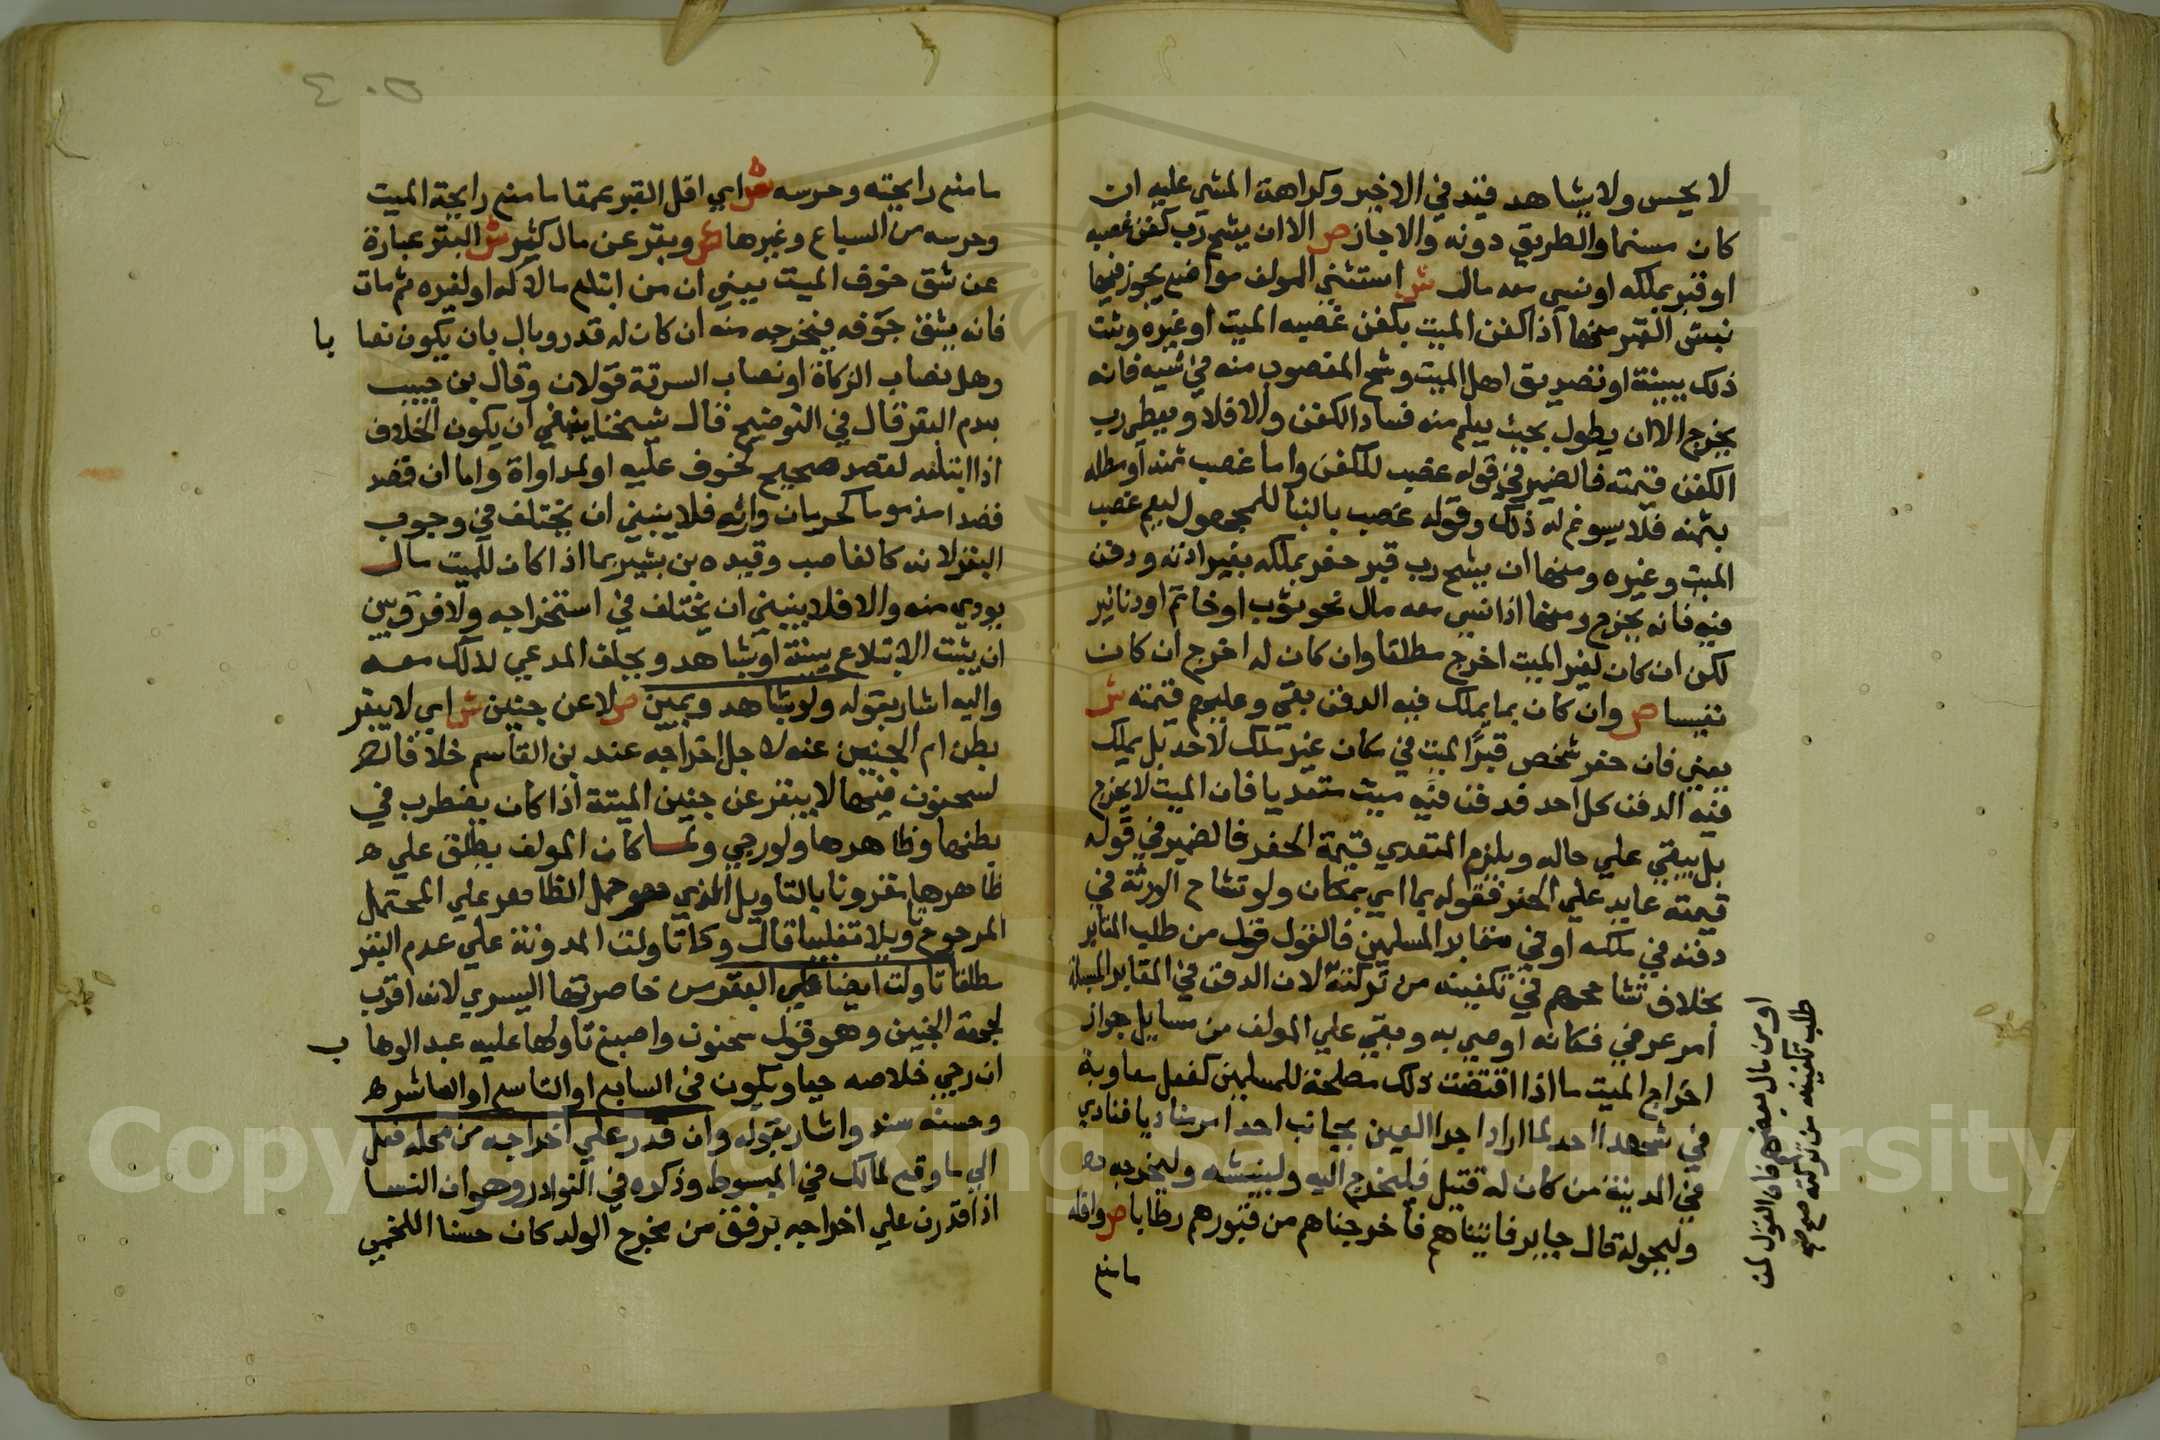 لا يحس ولا يشاهد فيند في الاخير وكراهة المشي عليه ان
كان مسنما والطريق دونه والاجاز ص الا ان يشح رب كفن غصبه
او قبر بملكه او نسي معه مال ش استثني المولف مواضع يجوز فيها
نبش القبر منها اذا كفن الميت بكفن غصبه الميت او غيره وثبت
ذلك ببينة او تصديق اهل الميت وشح المغصوب منه في شيه فانه
يخرج الا ان يطول بحيث يعلم منه فساد الكفن والا فلا ويعطي رب
الكفن قيمته فالضمير في قوله غصب للكفن واما غصب ثمنه او مطله
بثمنه فلا يسوغ له ذلك وقوله غصب بالبنا للمجهول ليعم غصب
الميت وغيره ومنها ان يشح رب قبر حفر بملكه بغير اذنه ودفن
فيه فانه يخرج ومنها اذا نسي معه مال نحو ثوب او خاتم او دنانير
لكن ان كان لغير الميت اخرج مطلقا وان كان له اخرج ان كان
نفيسا ص وان كان بما يملك فيه الدفن بقي وعليهم قيمته ش
يعني فان حفر شخص قبرا لميت في مكان غير ملك لاحد بل يملك
فيه الدفن كل احد فدفن فيه ميت متعديا فان الميت لا يخرج
بل يبقي علي حاله ويلزم المتعدي قيمة الحفر فالضمير في قوله
قيمته عايد علي الحفر فقوله بما اي بمكان ولو تشاح الورثة في
دفنه في ملكه او في مقابر المسلمين فالقول قول من طلب المقابر
بخلاف تشاحهم في تكفينه من تركته لان الدفن في المقابر المسبلة
امر عرفي فكانه اوصي به وبقي علي المولف من مسايل جواز
اخراج الميت ما اذا اقتضت ذلك مصلحة للمسلمين كفعل معاوية
في شهدا احد لما اراد اجرا العين بجانب احد امر مناديا فنادي
في المدينة من كان له قتيل فليخرج اليه ولينبشه وليخرجه
وليحوله قال جابر فاتيناهم فاخرجناهم من قبورهم رطابا ص واقله
ما منع
او من مال بعضهم فان القول لمن
طلب تكفينه من تركته صح صح
٤٠٥
ما منع رايحته وحرسه ش اي اقل القبر عمقا ما منع رايحة الميت
وحرسه من السباع وغيرها ص وبقر عن مال كثر ش البقر عبارة
عن شق جوف الميت يعني ان من ابتلع مالا له او لغيره ثم مات
فانه يشق جوفه فيخرجه منه ان كان له قدر وبال بان يكون نصا با
وهل نصاب الزكاة او نصاب السرقة قولان وقال بن حبيب
بعدم البقر قال في التوضيح قال شيخنا ينبغي ان يكون الخلاف
اذا ابتلعه لقصد صحيح لخوف عليه او لمداواة واما ان قصد
قصدا مذموما كحرمان وارثه فلا ينبغي ان يختلف في وجوب
البقر لانه كالغاصب وقيده بن بشير بما اذا كان للميت مال
يودي منه والا فلا ينبغي ان يختلف في استخراجه ولا فرق بين
ان يثبت الابتلاع ببينة او بشاهد ويحلف المدعي لذلك معه
واليه اشار بقوله ولو بشاهد ويمين ص لا عن جنين ش اي لا يبقر
بطن ام الجنين عنه لاجل اخراجه عند بن القاسم خلافا
لسحنون فيها لا يبقر عن جنين الميتة اذا كان يضطرب في
بطنها وظاهرها ولو رجي ولما كان المولف يطلق علي
ظاهرها مقرونا بالتاويل الذي هو حمل الظاهر علي المحتمل
المرجوح تاويلا تغليبا قال وكا تاولت المدونة علي عدم البقر
مطلقا تاولت ايضا علي البقر من خاصرتها اليسري لانه اقرب
لجهة الجنين وهو قول سحنون واصبغ تاولها عليه عبد الوها ب
ان رجي خلاصه حيا ويكون في السابع او التاسع او العاشر
وحسنه سند واشار بقوله وان قدر علي اخراجه من محله فعل
الي ما وقع لمالك في المبسوط وذكره في النوادر وهو ان النسا
اذا قدرن علي اخراجه برفق من مخرج الولد كان حسنا اللخمي
Copyright © King Saud University